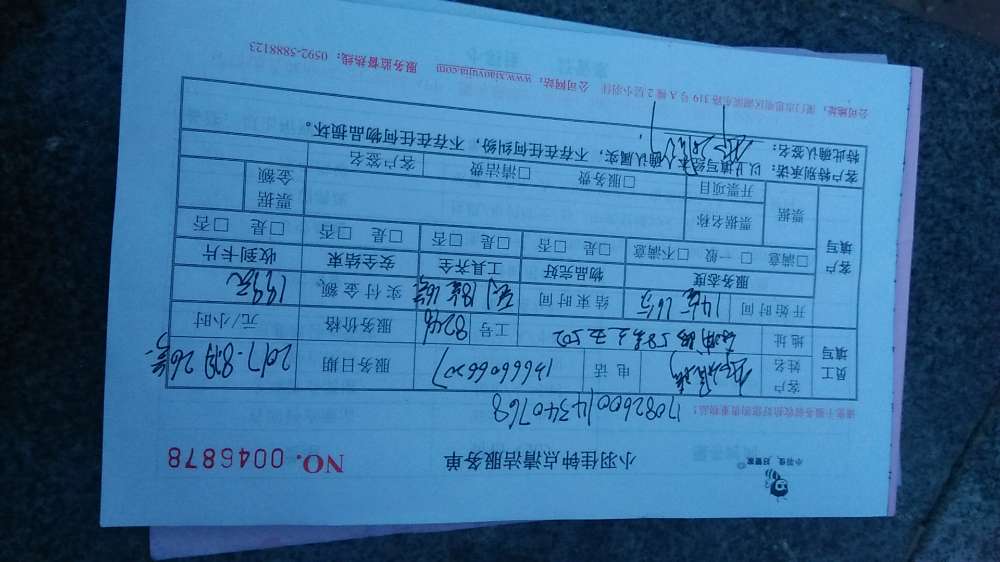 小羽佳 好管家
小羽佳钟点清洁服务单
NO. 0046878
请您于服务前收拾好您的贵重物品！
17082600 14340768
员工填写
客户姓名
电话
13666060627
服务日期
2017.8月26号
地址
工号
8246
服务价格
元/小时
开始时间
14点16分
结束时间
实付金额
客户填写
服务态度
物品完好
工具齐全
安全结束
收到卡片
□满意 □一般 □不满意
□是 □否
□是 □否
□是 □否
□是 □否
票据
票据名称
票据金额
开票项目
□服务费 □清洁费
客户签名
客户特别承诺：以上填写经本人确认属实，不存在任何纠纷，不存在任何物品损坏。
特此确认签名：
公司地址：厦门市思明区湖滨东路 319 号 A 幢 2 层小羽佳 公司网站：www.xiaoyujia.com 服务监督热线：0592-5888123